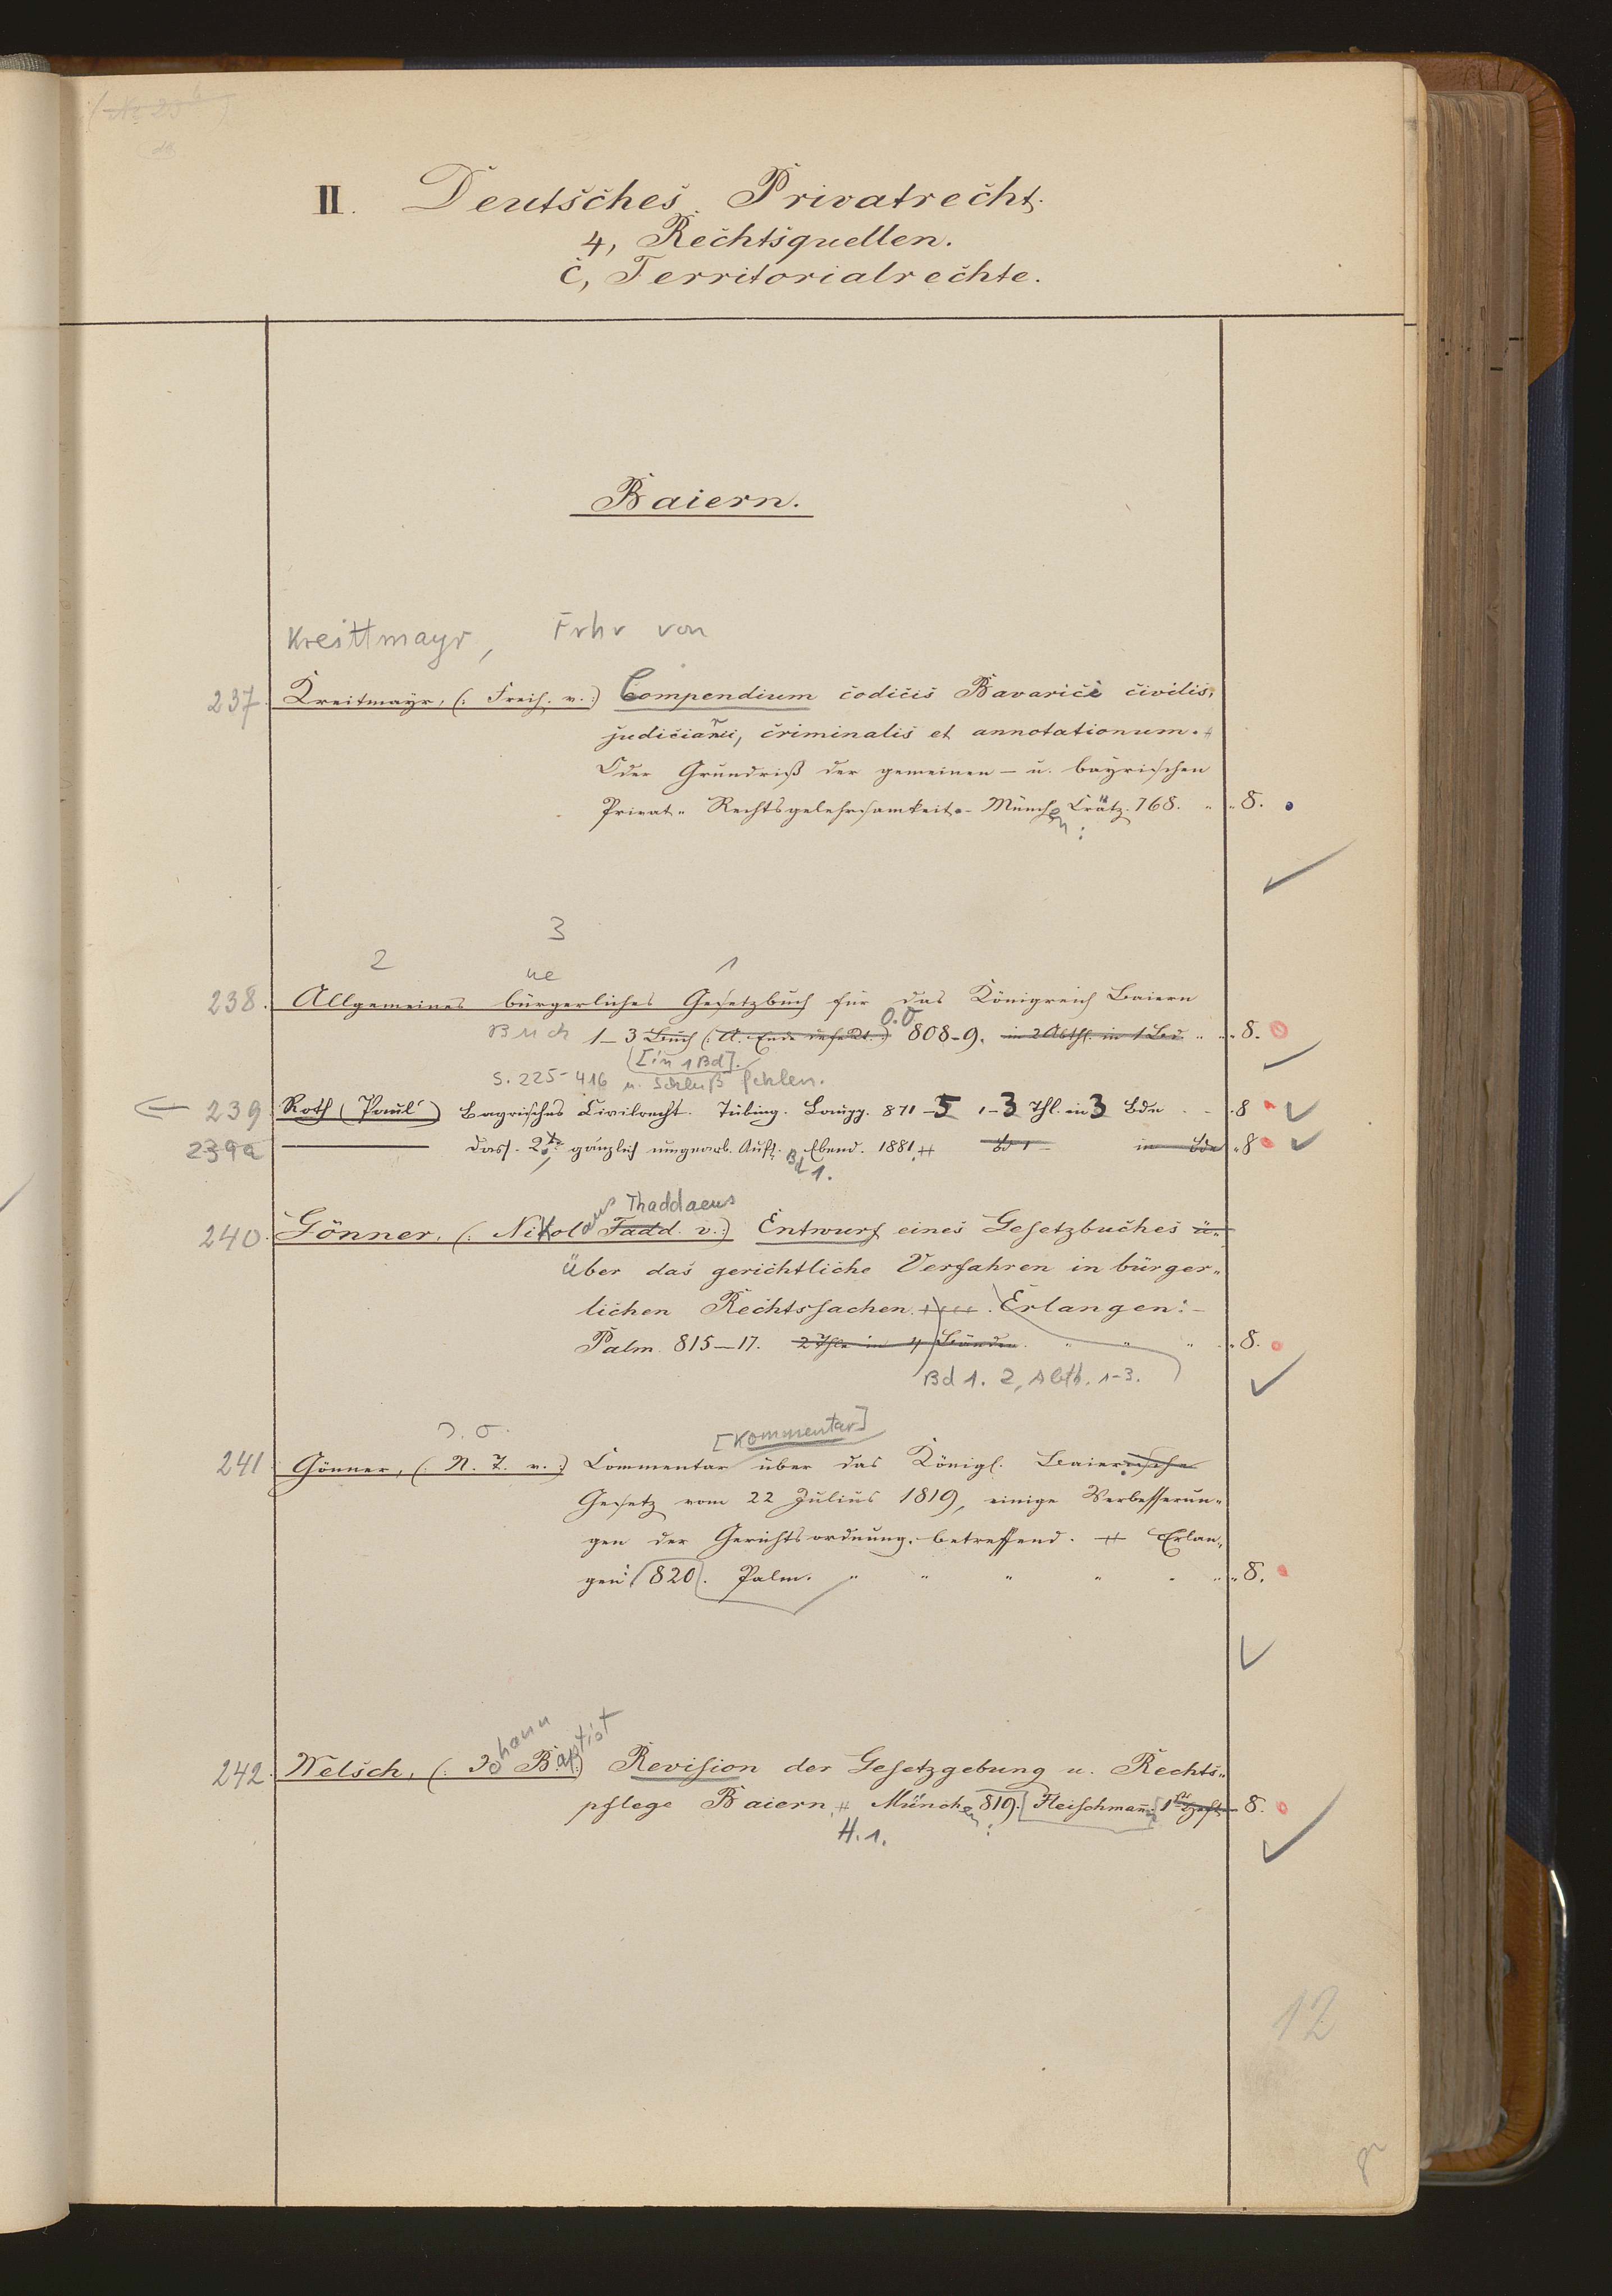 II. Deutsches Privatrecht.
4, Rechtsquellen.
c, Territorialrechte.
Baiern.
Kreittmayr, Frhr von
237. Kreitmayr, (: Freih. v. :) Compendium codicis Bavarici civilis,
judiciarii, criminalis et annotationum.
Oder Grundriß der gemeinen - u. bayrischen
Privat-Rechtsgelehrsamkeit.- München: Crätz. 768. " " 8.
3
2 ne 1
238. Allgemeines bürgerliches Gesetzbuch für das Königreich Baiern
O. O.
Buch 1-3 Buch (: A. Ende defekt. :) 808-9. in 2 Abth. in 1 Bd. " " 8.
[in 1 Bd].
S. 225-416 u. Schluß fehlen.
239 Roth (Paul) Bayrisches Civilrecht. Tübing. Laupp. 871-5 1-3 Thl. in 3 Bdn . - 8
239a ——— Dass. 2te gänzlich umgearb. Aufl. Ebend. 1881. Bd 1 - in Bdn " 8
Bd 1.
aus Thaddaeus
240. Gönner, (: Nikol Tadd. v. :) Entwurf eines Gesetzbuches ü-
über das gerichtliche Verfahren in bürger-
lichen Rechtssachen. Erlangen:
Palm. 815-17. 2 Thle in 4 Bänden. " " " " 8.
Bd 1. 2, Abth. 1-3.
[Kommentar]
241 Gönner, (: N. T. v. :) Commentar über das Königl. Baierische
Gesetz vom 22 Julius 1819, einige Verbesserun-
gen der Gerichtsordnung. betreffend. Erlan-
gen: 820. Palm. " " " " " " 8.
242. Welsch, (: Johann Baptist :) Revision der Gesetzgebung u. Rechts-
pflege Baiern. München: 819. [Fleischmann] 1stes Heft 8.
H. 1.
12